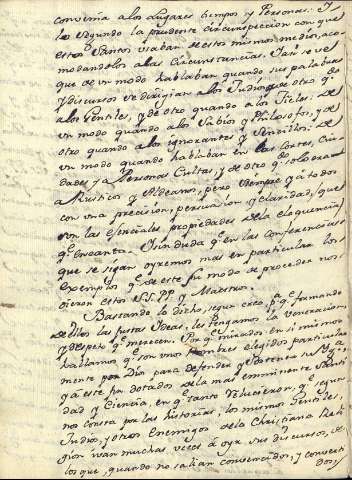 convinia a los Lugares tiempos y Personas: Y
lo segundo la prudente circunspeccion con que
estos Santos usaban de estos mismos medios, aco-
modandolos a las Circunstancias. Tal se ve
que de un modo hablaban quando sus palabras
y discursos se dirigian a los Judios, de otro qdo
a los Gentiles, y de otro quando a los Fieles. De
un modo quando a los Sabios y Philosofos, y de
otro quando a los ignorantes y Sencillos. De
un modo quando hablaban en las Cortes, Ciu-
dades y a Personas Cultas, y de otro qdo solo eran
a Rusticos y Aldeanos, pero siempre y a todos
con una precision, persuasion y claridad, que
son las esenciales propiedades de la eloquencia
qe encanta. Y sin duda qe en las conferencias
que se sigan oyremos mas en particular los
exemplos qe de este su modo de proceder nos
dieron estos SS. PP. y Maestros.
Bastando lo dicho, segun creo, pa qe formando
de ellos las justas Ideas, les tengamos la veneracion,
y respeto qe merecen. Porqe mirados en si mismos
hallamos qe son unos hombres elegidos particular-
mente por Dios para defender y sostener su Yga
y a este fin dotados de la mas eminente Santi-
dad y Ciencia, en qe tanto relucieron, qe segun
nos consta por las historias, los mismos Gentiles,
Judios, y otros Enemigos de la Christiana Reli-
gion ivan muchas veces a oyr sus discursos, de
los que, quando no salian convencidos, y converti-
dos,